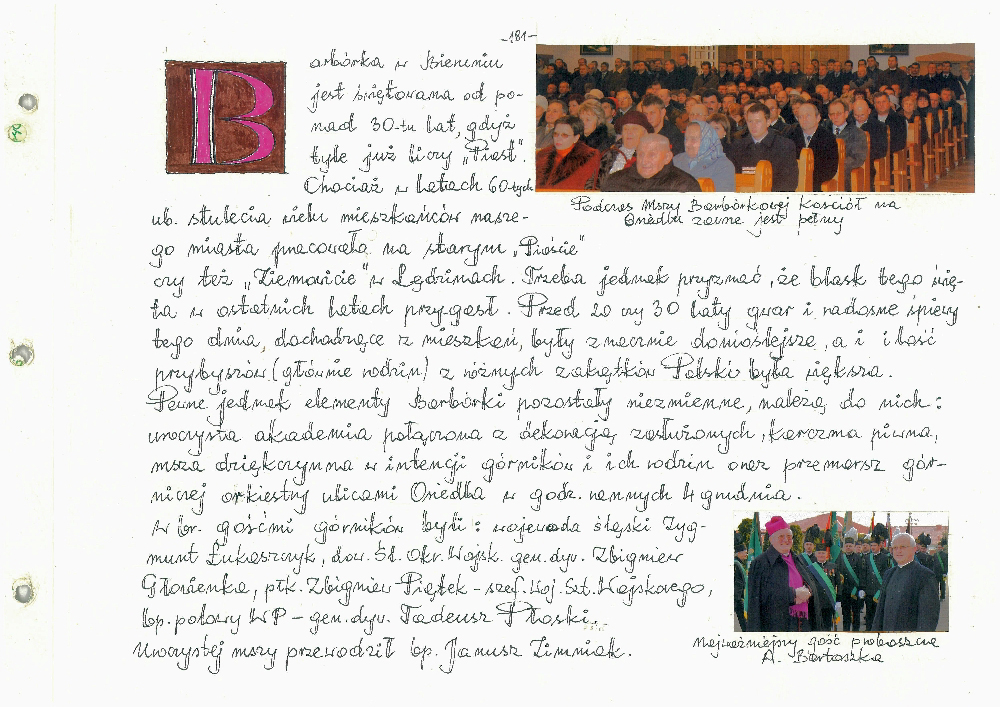 -181-
Barbórka w Bieruniu
jest świętowana od po-
nad 30-tu lat, gdyż
tyle już liczy „Piast".
Chociaż w latach 60-tych
ub. stulecia wielu mieszkańców nasze-
go miasta pracowała na starym „Piaście"
czy też „Ziemowicie" w Lędzinach. Trzeba jednak przyznać, że blask tego świę-
ta w ostatnich latach przygasł. Przed 20 czy 30 laty gwar i radosne śpiewy
tego dnia, dochodzące z mieszkań, były znacznie donioślejsze, a i ilość
przybyszów (głównie rodzin) z różnych zakątków Polski była większa.
Pewne jednak elementy Barbórki pozostały niezmienne, należą do nich:
uroczysta akademia połączona z dekoracją zasłużonych, karczma piwna,
msza dziękczynna w intencji górników i ich rodzin oraz przemarsz gór-
niczej orkiestry ulicami Osiedla w godz. rannych 4 grudnia.
W br. gośćmi górników byli: wojewoda śląski Zyg-
munt Łukaszczyk, dow. Śl. Okr. Wojsk. gen. dyw. Zbigniew
Głowienka, płk. Zbigniew Piątek - szef. Woj. Szt. Wojskowego,
bp. polowy WP - gen. dyw. Tadeusz Płoski.
Uroczystej mszy przewodził bp. Janusz Zimniak.
Podczas Mszy Barbórkowej kościół na
Osiedlu zawsze jest pełny
Najważniejszy gość proboszcza
A. Bartoszka